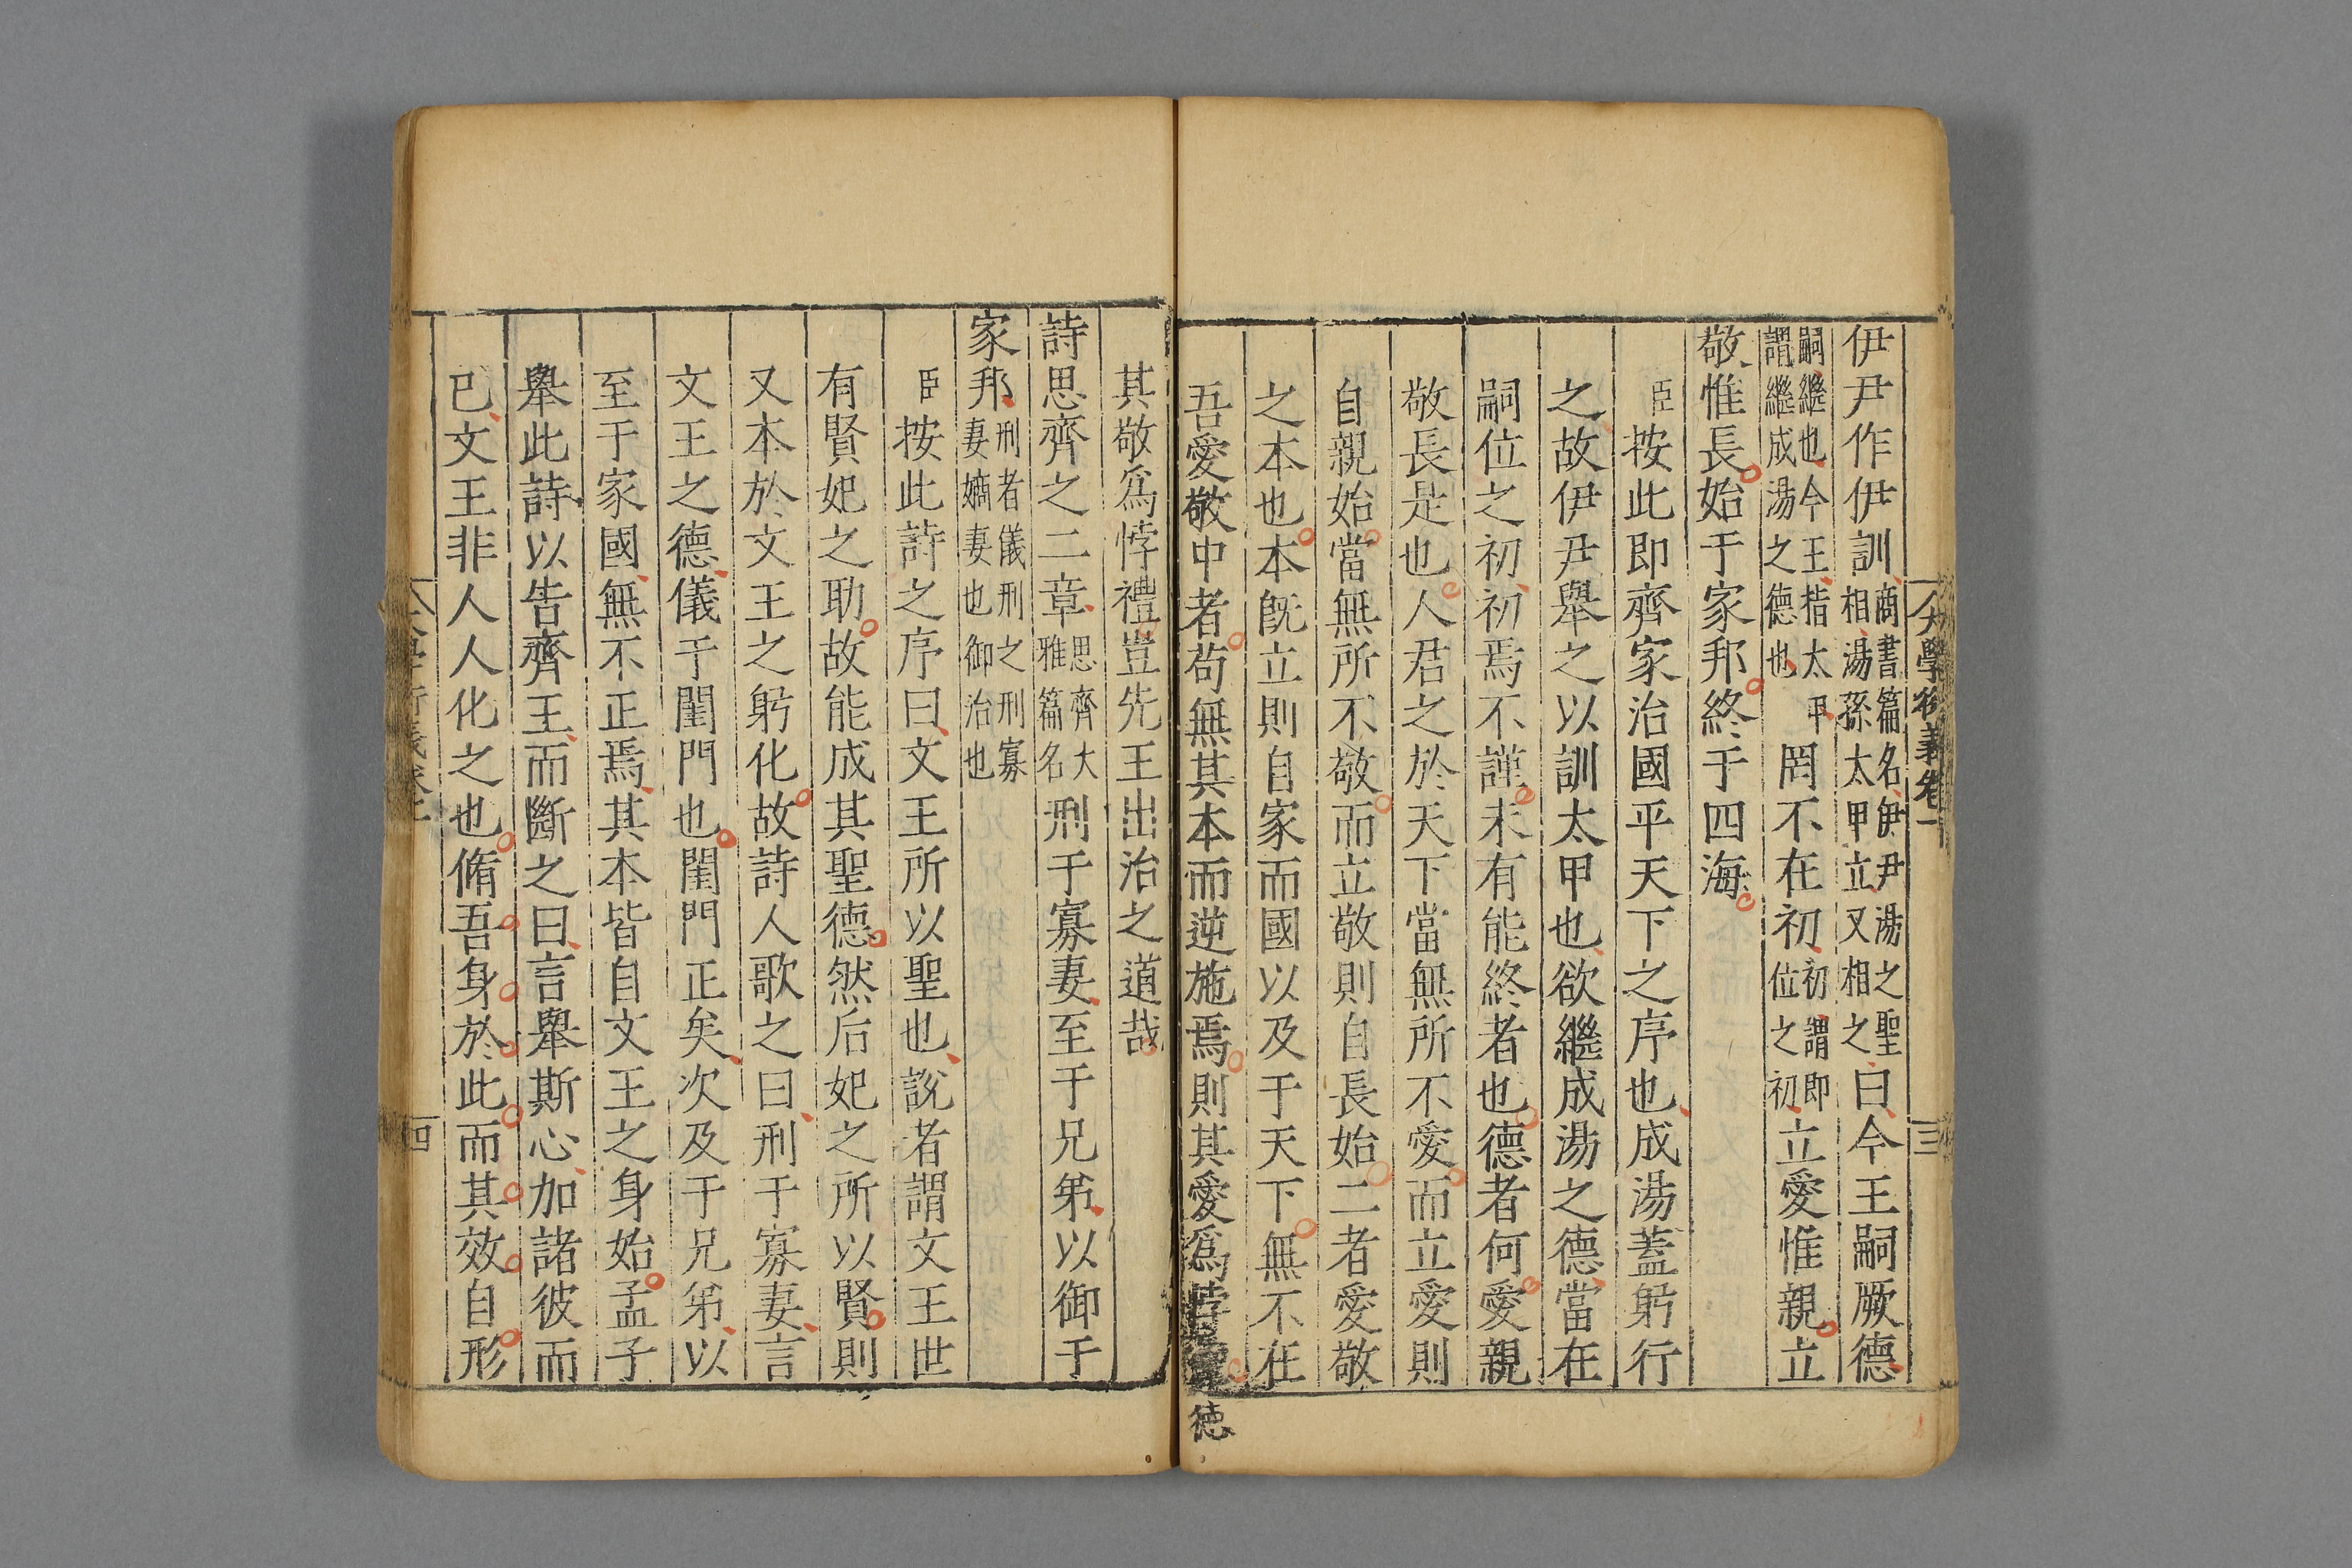 大學衍義卷一
三
伊尹作伊訓商書篇名伊尹湯之聖相湯孫太甲立又相之曰今王嗣厥德
嗣繼也今王指太甲謂繼成湯之德也罔不在初初謂即位之初立愛惟親立
敬惟長始于家邦終于四海
臣按此即齊家治國平天下之序也成湯蓋躬行
之故伊尹舉之以訓太甲也欲繼成湯之德當在
嗣位之初初焉不謹未有能終者也德者何愛親
敬長是也人君之於天下當無所不愛而立愛則
自親始當無所不敬而立敬則自長始二者愛敬
之本也本既立則自家而國以及于天下無不在
吾愛敬中者苟無其本而逆施焉則其愛爲悖德
其敬爲悖禮豈先王出治之道哉
詩思齊之二章思齊大雅篇名刑于寡妻至于兄弟以御于
家邦刑者儀刑之刑寡妻嫡妻也御治也
臣按此詩之序曰文王所以聖也說者謂文王世
有賢妃之助故能成其聖德然后妃之所以賢則
又本於文王之躬化故詩人歌之曰刑于寡妻言
文王之德儀于閨門也閨門正矣次及于兄弟以
至于家國無不正焉其本皆自文王之身始孟子
舉此詩以告齊王而斷之曰言舉斯心加諸彼而
已文王非人人化之也脩吾身於此而其效自形
四